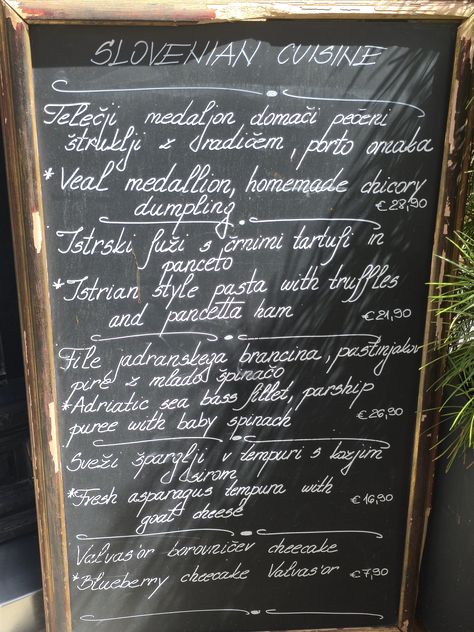 SLOVENIAN CUISINE
Telečji medaljon domači pečeni
štruklji z radičem, porto omaka
*Veal medallion, homemade chicory
dumpling €28,90
Istrski fuži s črnimi tartufi in
panceto
*Istrian style pasta with truffles
and pancetta ham €21,90
File jadranskega brancina, pastinjakov
pire z mlado špinačo
*Adriatic sea bass fillet, parship
puree with baby spinach €26,90
Sveži šparglji v tempuri s kozjim
sirom
*Fresh asparagus tempura with
goat cheese €16,90
Valvas'or borovničev cheecake
*Blueberry cheecake Valvas'or €7,90